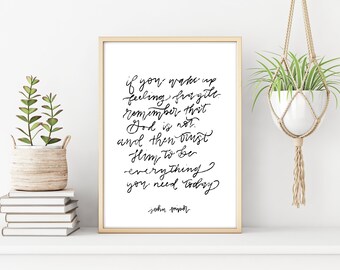 if you wake up
feeling fragile
remember that
God is not
and then trust
Him to be
everything
you need today
john piper